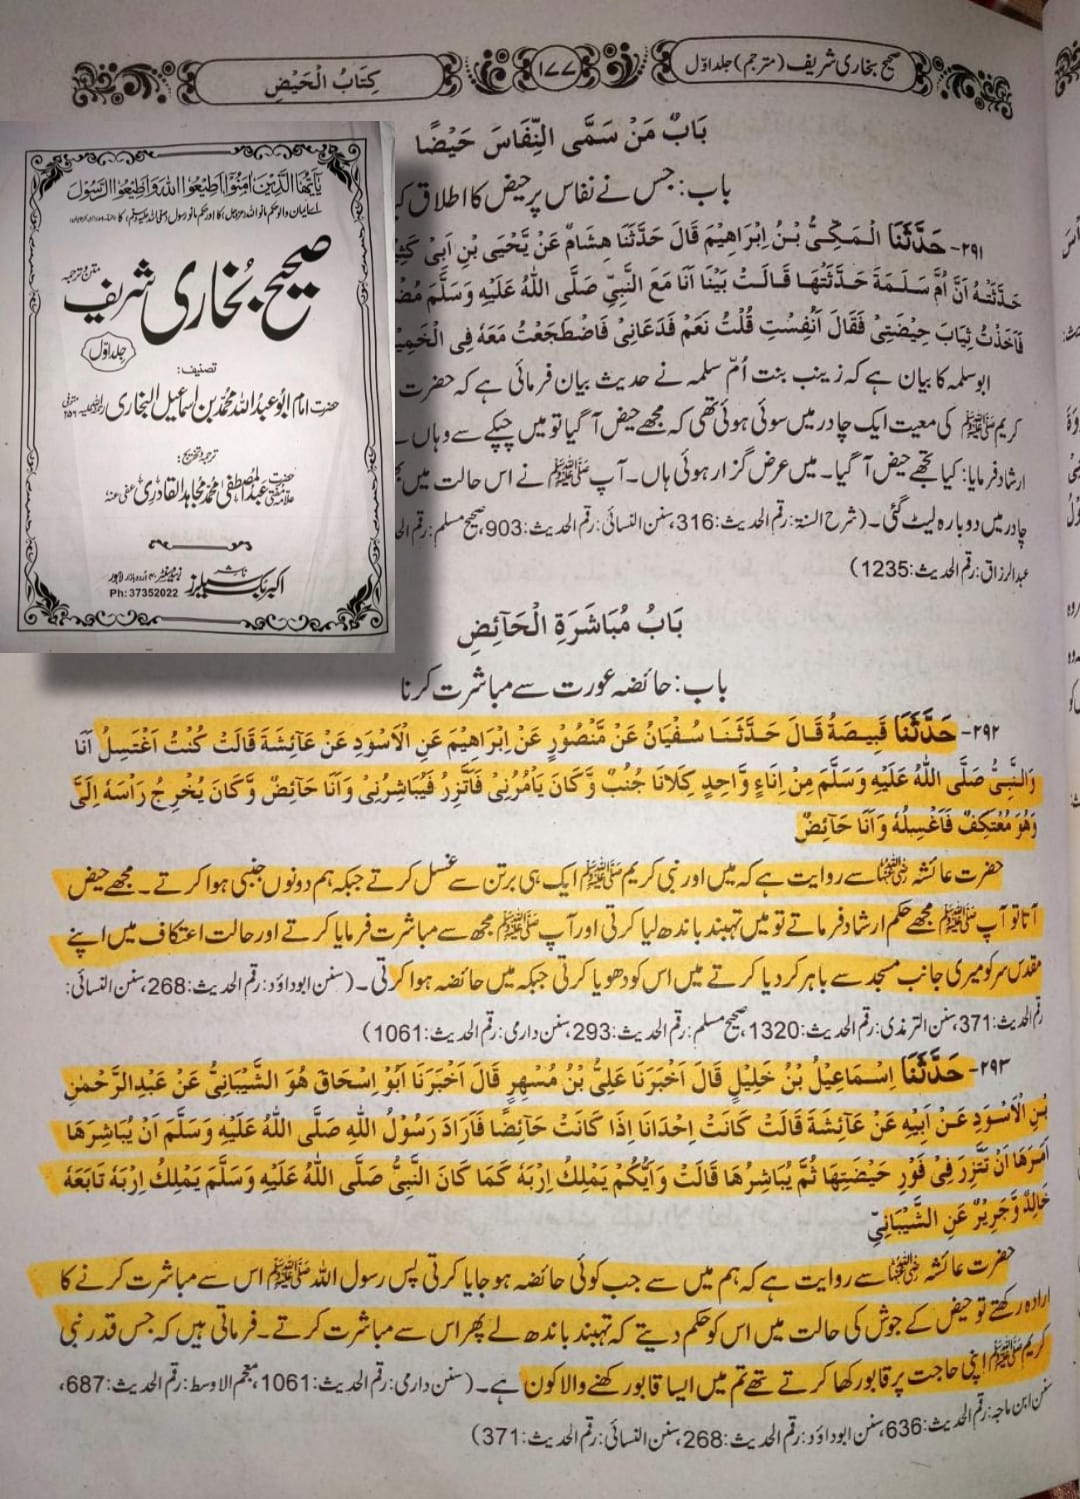 صحیح بخاری شریف (مترجم) جلد اوّل
۱۷۷
کِتَابُ الْحَیْضِ
بَابُ مَنْ سَمَّی النِّفَاسَ حَیْضًا
باب: جس نے نفاس پر حیض کا اطلاق
۲۹۱- حَدَّثَنَا الْمَکِّیُّ بْنُ اِبْرَاهِیْمَ قَالَ حَدَّثَنَا هِشَامٌ عَنْ یَّحْیَی بْنِ اَبِیْ
حَدَّثَتْهُ اَنَّ اُمَّ سَلَمَةَ حَدَّثَتْهَا قَالَتْ بَیْنَا اَنَا مَعَ النَّبِیِّ صَلَّی اللهُ عَلَیْهِ وَسَلَّمَ
فَاَخَذْتُ ثِیَابَ حِیْضَتِیْ فَقَالَ اَنُفِسْتِ قُلْتُ نَعَمْ فَدَعَانِیْ فَاضْطَجَعْتُ مَعَهٗ فِی
ابوسلمہ کا بیان ہے کہ زینب بنت اُمّ سلمہ نے حدیث بیان فرمائی ہے کہ حضرت
کریم ﷺ کی معیت ایک چادر میں سوئی ہوئی تھی کہ مجھے حیض آ گیا تو میں چپکے سے وہاں
ارشاد فرمایا: کیا تجھے حیض آ گیا۔ میں عرض گزار ہوئی ہاں۔ آپ ﷺ نے اس حالت میں
چادر میں دوبارہ لیٹ گئی۔ (شرح السنۃ: رقم الحدیث: 316، سنن النسائی: رقم الحدیث: 903، صحیح مسلم: رقم
عبدالرزاق: رقم الحدیث: 1235)
بَابُ مُبَاشَرَةِ الْحَآئِضِ
باب: حائضہ عورت سے مباشرت کرنا
۲۹۲- حَدَّثَنَا قَبِیصَةُ قَالَ حَدَّثَنَا سُفْیَانُ عَنْ مَّنْصُوْرٍ عَنْ اِبْرَاهِیْمَ عَنِ الْاَسْوَدِ عَنْ عَآئِشَةَ قَالَتْ کُنْتُ اَغْتَسِلُ اَنَا
وَالنَّبِیُّ صَلَّی اللهُ عَلَیْهِ وَسَلَّمَ مِنْ اِنَاءٍ وَّاحِدٍ کِلَانَا جُنُبٌ وَّکَانَ یَاْمُرُنِیْ فَاَتَّزِرُ فَیُبَاشِرُنِیْ وَاَنَا حَائِضٌ وَّکَانَ یُخْرِجُ رَاْسَهٗ اِلَیَّ
وَهُوَ مُعْتَکِفٌ فَاَغْسِلُهٗ وَاَنَا حَآئِضٌ
حضرت عائشہ رضی اللہ عنہا سے روایت ہے کہ میں اور نبی کریم ﷺ ایک ہی برتن سے غسل کرتے جبکہ ہم دونوں جنبی ہوا کرتے۔ مجھے حیض
آتا تو آپ ﷺ مجھے حکم ارشاد فرماتے تو میں تہبند باندھ لیا کرتی اور آپ ﷺ مجھ سے مباشرت فرمایا کرتے اور حالت اعتکاف میں اپنے
مقدس سر کو میری جانب مسجد سے باہر کر دیا کرتے میں اس کو دھویا کرتی جبکہ میں حائضہ ہوا کرتی۔ (سنن ابوداؤد: رقم الحدیث: 268، سنن النسائی:
رقم الحدیث: 371، سنن الترمذی: رقم الحدیث: 1320، صحیح مسلم: رقم الحدیث: 293، سنن دارمی: رقم الحدیث: 1061)
۲۹۳- حَدَّثَنَا اِسْمَاعِیْلُ بْنُ خَلِیْلٍ قَالَ اَخْبَرَنَا عَلِیُّ بْنُ مُسْهِرٍ قَالَ اَخْبَرَنَا اَبُوْ اِسْحَاقَ هُوَ الشَّیْبَانِیُّ عَنْ عَبْدِالرَّحْمٰنِ
بْنِ الْاَسْوَدِ عَنْ اَبِیْهِ عَنْ عَآئِشَةَ قَالَتْ کَانَتْ اِحْدَانَا اِذَا کَانَتْ حَآئِضًا فَاَرَادَ رَسُوْلُ اللهِ صَلَّی اللهُ عَلَیْهِ وَسَلَّمَ اَنْ یُبَاشِرَهَا
اَمَرَهَا اَنْ تَتَّزِرَ فِیْ فَوْرِ حَیْضَتِهَا ثُمَّ یُبَاشِرُهَا قَالَتْ وَاَیُّکُمْ یَمْلِکُ اِرْبَهٗ کَمَا کَانَ النَّبِیُّ صَلَّی اللهُ عَلَیْهِ وَسَلَّمَ یَمْلِکُ اِرْبَهٗ تَابَعَهٗ
خَالِدٌ وَّجَرِیْرٌ عَنِ الشَّیْبَانِیِّ
حضرت عائشہ رضی اللہ عنہا سے روایت ہے کہ ہم میں سے جب کوئی حائضہ ہو جایا کرتی پس رسول اللہ ﷺ اس سے مباشرت کرنے کا
ارادہ رکھتے تو حیض کے جوش کی حالت میں اس کو حکم دیتے کہ تہبند باندھ لے پھر اس سے مباشرت کرتے۔ فرماتی ہیں کہ جس قدر نبی
کریم ﷺ اپنی حاجت پر قابو رکھا کرتے تھے تم میں ایسا قابو رکھنے والا کون ہے۔ (سنن دارمی: رقم الحدیث: 1061، معجم الاوسط: رقم الحدیث: 687،
سنن ابن ماجہ: رقم الحدیث: 636، سنن ابوداؤد: رقم الحدیث: 268، سنن النسائی: رقم الحدیث: 371)
یٰٓاَیُّهَا الَّذِیْنَ اٰمَنُوْٓا اَطِیْعُوا اللهَ وَاَطِیْعُوا الرَّسُوْلَ
اے ایمان والو حکم مانو اللہ عزوجل کا اور حکم مانو رسول صلی اللہ علیہ وسلم کا
صحیح بُخاری شریف
متن و ترجمہ
جلد اوّل
تصنیف:
حضرت امام ابو عبد اللہ محمد بن اسماعیل البخاری رحمۃ اللہ علیہ متوفی ۲۵۶ھ
ترجمہ و تخریج:
حضرت علامہ مفتی عبد المصطفیٰ محمد مجاہد القادری عفی عنہ
ناشر
اکبر بک سیلرز
زبیدہ سنٹر ۴۰ اردو بازار لاہور
Ph: 37352022